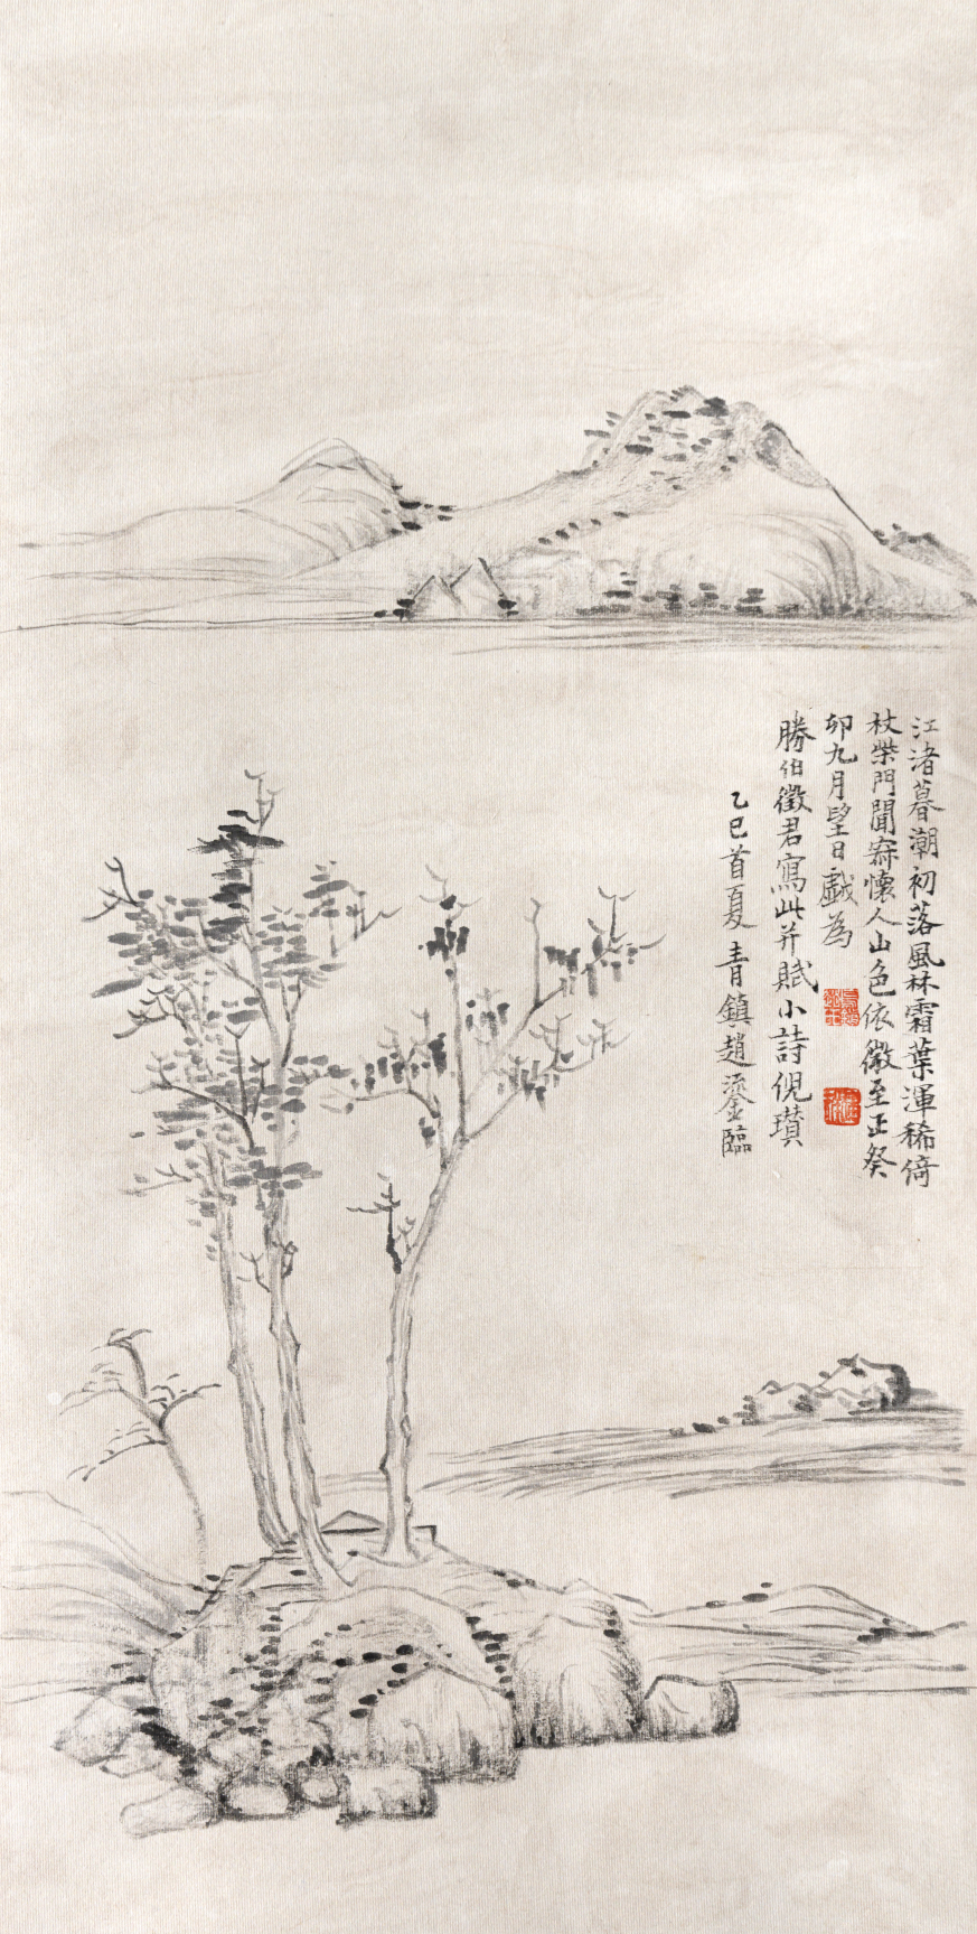 江渚暮潮初落風林霜葉渾稀倚
杖柴門闃寂懷人山色依微至正癸
卯九月望日戲為
勝伯徵君寫此并賦小詩倪瓚
乙巳首夏青鎮趙鎏臨